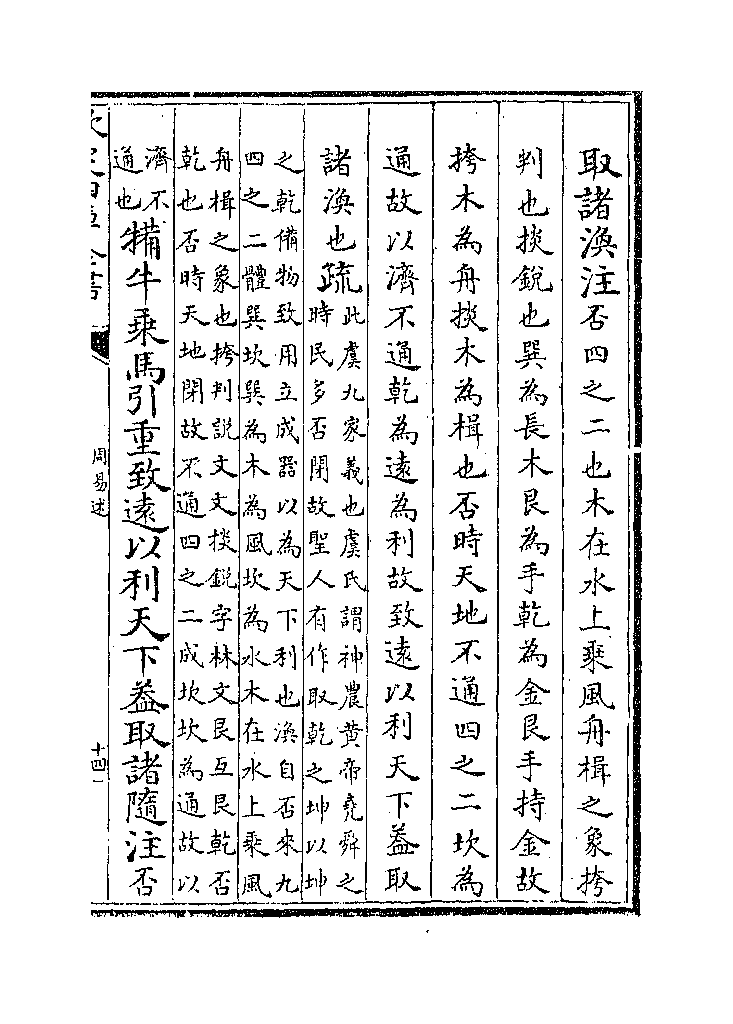 取諸渙注否四之二也木在水上乘風舟楫之象挎
判也掞銳也巽為長木艮為手乾為金艮手持金故
挎木為舟掞木為楫也否時天地不通四之二坎為
通故以濟不通乾為遠為利故致遠以利天下葢取
諸渙也疏此虞九家義也虞氏謂神農黄帝堯舜之
時民多否閉故聖人有作取乾之坤以坤
之乾備物致用立成器以為天下利也渙自否來九
四之二體巽坎巽為木為風坎為水木在水上乘風
舟楫之象也挎判説文文掞銳字林文艮互艮乾否
乾也否時天地閉故不通四之二成坎坎為通故以
濟不
通也犕牛乘馬引重致遠以利天下葢取諸隨注否
欽定四庫全書
周易述
十四